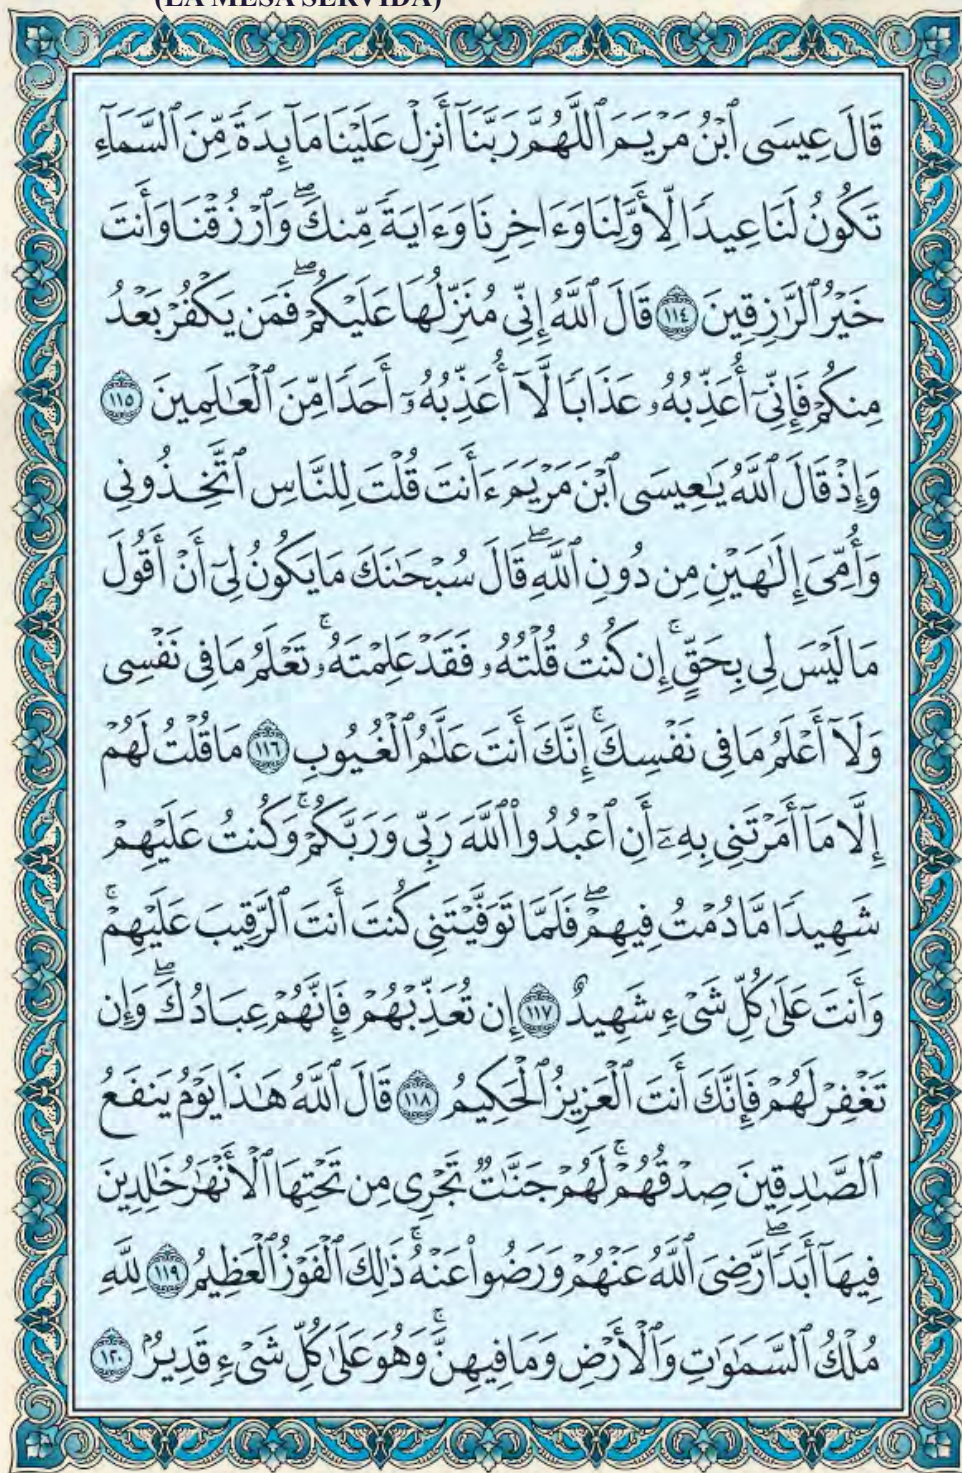 (LA MESA SERVIDA)
قَالَ عِيسَى ٱبْنُ مَرْيَمَ ٱللَّهُمَّ رَبَّنَآ أَنزِلْ عَلَيْنَا مَآئِدَةً مِّنَ ٱلسَّمَآءِ
تَكُونُ لَنَا عِيدًا لِّأَوَّلِنَا وَءَاخِرِنَا وَءَايَةً مِّنكَ ۖ وَٱرْزُقْنَا وَأَنتَ
خَيْرُ ٱلرَّٰزِقِينَ ١١٤ قَالَ ٱللَّهُ إِنِّى مُنَزِّلُهَا عَلَيْكُمْ ۖ فَمَن يَكْفُرْ بَعْدُ
مِنكُمْ فَإِنِّىٓ أُعَذِّبُهُۥ عَذَابًا لَّآ أُعَذِّبُهُۥٓ أَحَدًا مِّنَ ٱلْعَٰلَمِينَ ١١٥
وَإِذْ قَالَ ٱللَّهُ يَٰعِيسَى ٱبْنَ مَرْيَمَ ءَأَنتَ قُلْتَ لِلنَّاسِ ٱتَّخِذُونِى
وَأُمِّىَ إِلَٰهَيْنِ مِن دُونِ ٱللَّهِ ۖ قَالَ سُبْحَٰنَكَ مَا يَكُونُ لِىٓ أَنْ أَقُولَ
مَا لَيْسَ لِى بِحَقٍّ ۚ إِن كُنتُ قُلْتُهُۥ فَقَدْ عَلِمْتَهُۥ ۚ تَعْلَمُ مَا فِى نَفْسِى
وَلَآ أَعْلَمُ مَا فِى نَفْسِكَ ۚ إِنَّكَ أَنتَ عَلَّٰمُ ٱلْغُيُوبِ ١١٦ مَا قُلْتُ لَهُمْ
إِلَّا مَآ أَمَرْتَنِى بِهِۦٓ أَنِ ٱعْبُدُوا۟ ٱللَّهَ رَبِّى وَرَبَّكُمْ ۚ وَكُنتُ عَلَيْهِمْ
شَهِيدًا مَّا دُمْتُ فِيهِمْ ۖ فَلَمَّا تَوَفَّيْتَنِى كُنتَ أَنتَ ٱلرَّقِيبَ عَلَيْهِمْ ۚ
وَأَنتَ عَلَىٰ كُلِّ شَىْءٍ شَهِيدٌ ١١٧ إِن تُعَذِّبْهُمْ فَإِنَّهُمْ عِبَادُكَ ۖ وَإِن
تَغْفِرْ لَهُمْ فَإِنَّكَ أَنتَ ٱلْعَزِيزُ ٱلْحَكِيمُ ١١٨ قَالَ ٱللَّهُ هَٰذَا يَوْمُ يَنفَعُ
ٱلصَّٰدِقِينَ صِدْقُهُمْ ۚ لَهُمْ جَنَّٰتٌ تَجْرِى مِن تَحْتِهَا ٱلْأَنْهَٰرُ خَٰلِدِينَ
فِيهَآ أَبَدًا ۖ رَّضِىَ ٱللَّهُ عَنْهُمْ وَرَضُوا۟ عَنْهُ ۚ ذَٰلِكَ ٱلْفَوْزُ ٱلْعَظِيمُ ١١٩ لِلَّهِ
مُلْكُ ٱلسَّمَٰوَٰتِ وَٱلْأَرْضِ وَمَا فِيهِنَّ ۚ وَهُوَ عَلَىٰ كُلِّ شَىْءٍ قَدِيرٌۢ ١٢٠